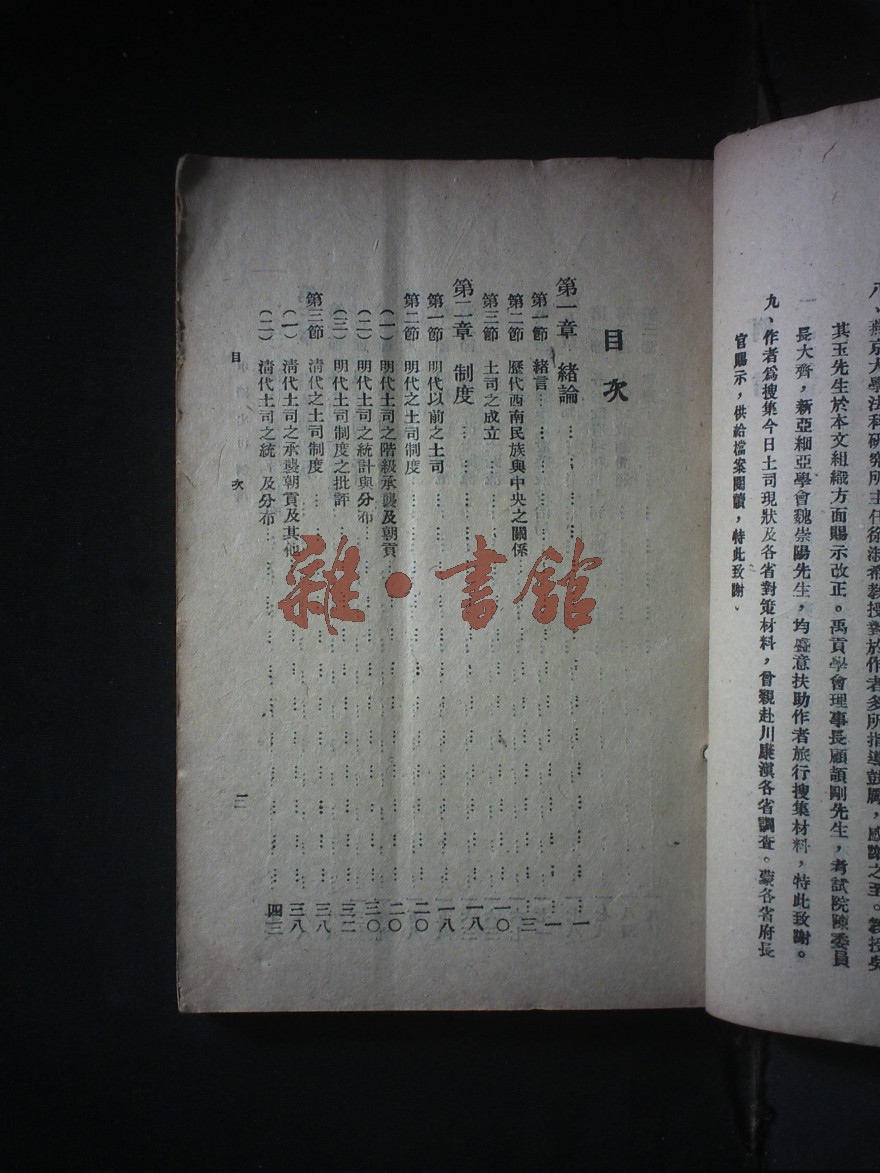 八、燕京大學法科研究所主任徐淑希教授對於作者多所指導鼓勵，感謝之至。教授吳
其玉先生於本文組織方面賜示改正。禹貢學會理事長顧頡剛先生，考試院陳委員
長大齊，新亞細亞學會魏崇陽先生，均盛意扶助作者旅行搜集材料，特此致謝。
九、作者爲搜集今日土司現狀及各省對策材料，曾親赴川康滇各省調查。蒙各省府長
官賜示，供給檔案閱讀，特此致謝。
目次
第一章 緒論……一
第一節 緒言……一
第二節 歷代西南民族與中央之關係……三
第三節 土司之成立……一〇
第二章 制度……一八
第一節 明代以前之土司……一八
第二節 明代之土司制度……二〇
（一）明代土司之階級承襲及朝貢……二〇
（二）明代土司之統計與分布……三〇
（三）明代土司制度之批評……三二
第三節 清代之土司制度……三八
（一）清代土司之承襲朝貢及其他……三八
（二）清代土司之統 及分布……四三
目 次
雜·書館